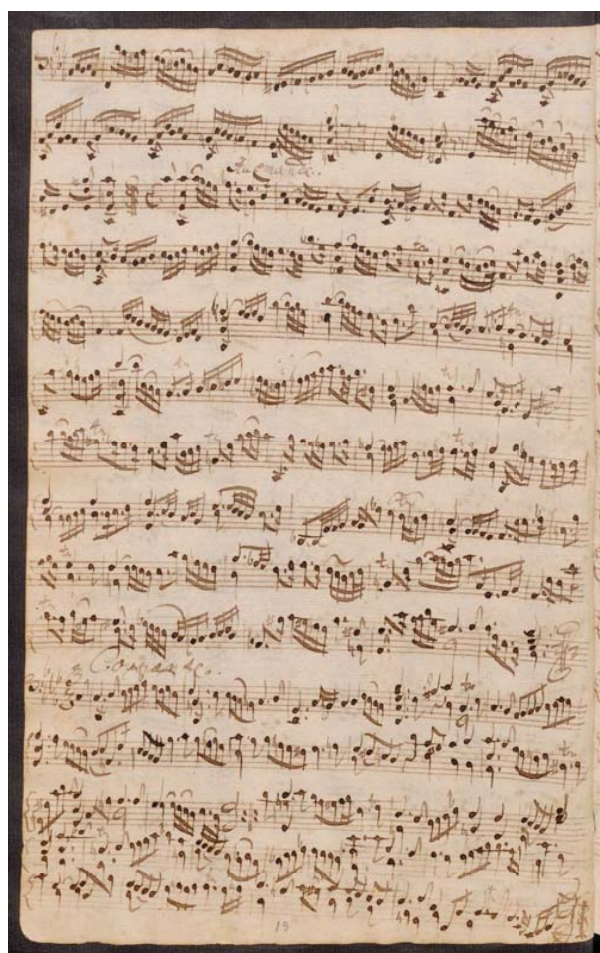 Allemande.
Courante.
19